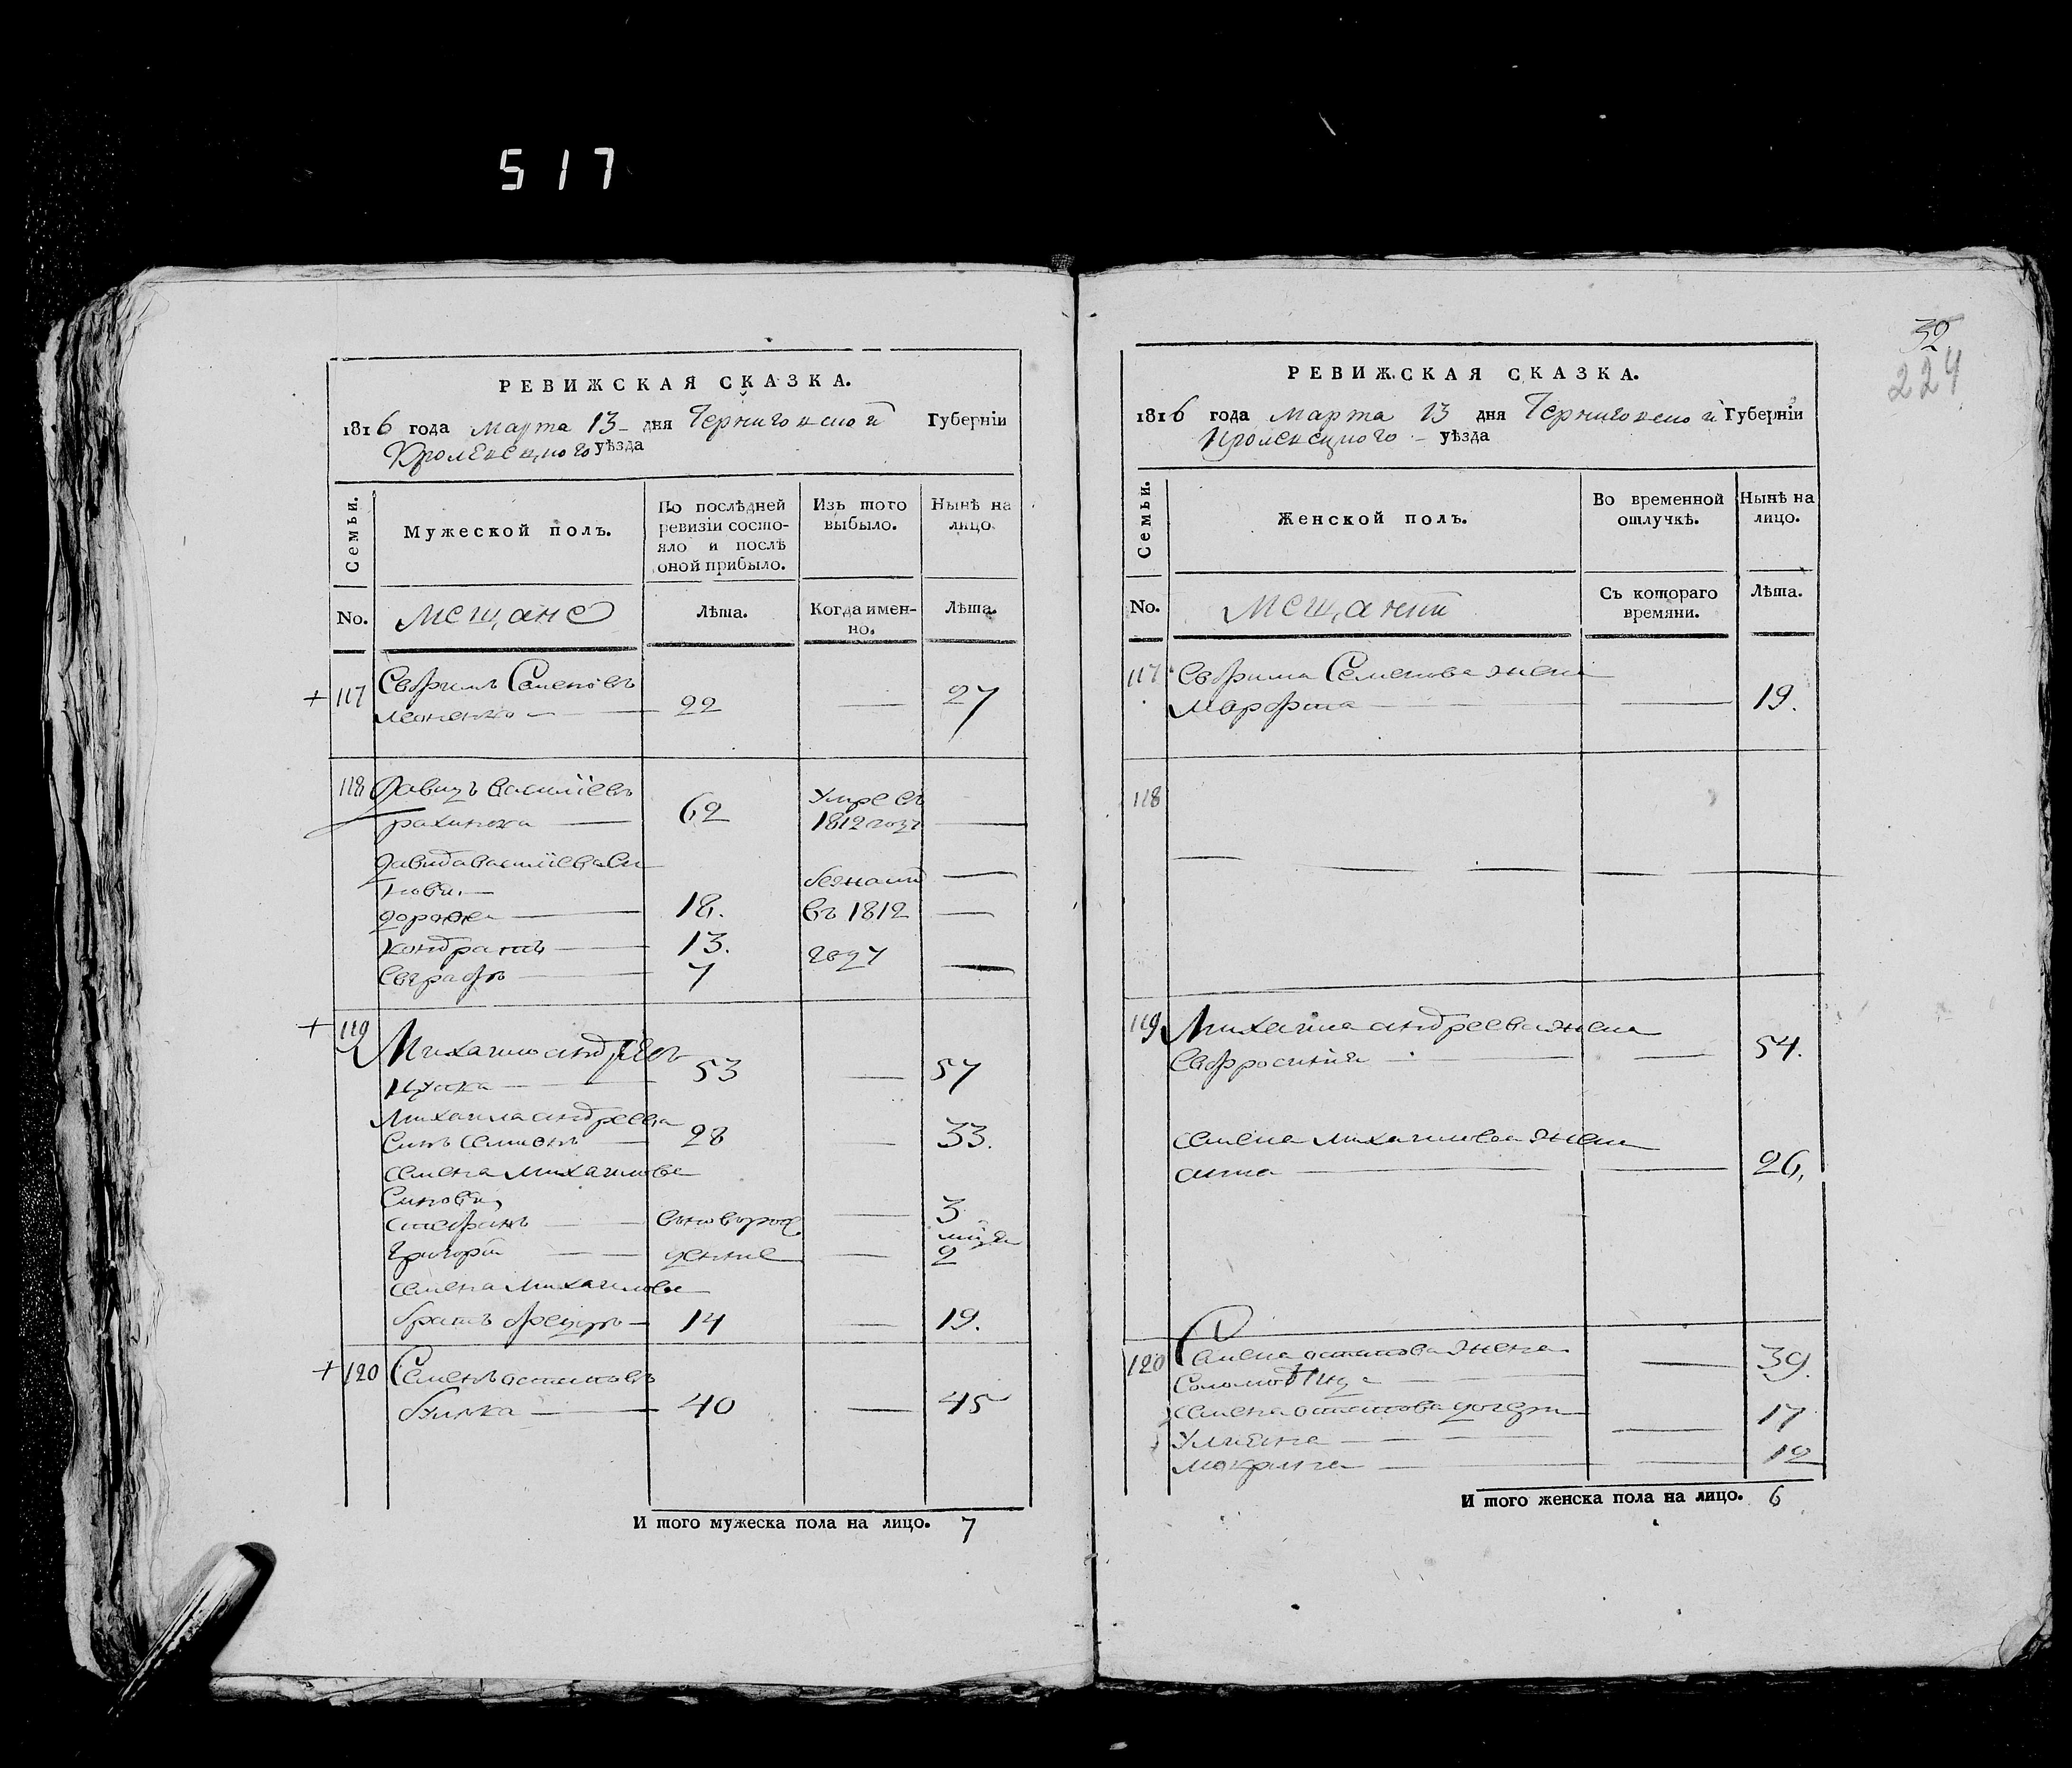 517
32
224
РЕВИЖСКАЯ СКАЗКА.
1816 года Марта 13 дня Черниговской Губернїи
Кролевецкого уѣзда
Семьи.
Мужеской полъ.
По послѣдней ревизїи состояло и послѣ оной прибыло.
Изъ того выбыло.
Нынѣ на лицо.
No.
мещане
Лѣта.
Когда именно.
Лѣта.
117 Евфимъ Семеновъ
22 27
118 Давидъ Василїевъ
62 Умре въ
1812 году
Давида Василїева Си
нови
18. въ 1812
Кондратъ 13. году
Евграфъ 7
119 Михайло Андреевъ
53 57
Михайла Андреева
Синъ Семионъ 28 33.
Семена Михайлова
Синови
Стефанъ 3
Григорїй 2
Семена Михайлова
братъ 14 19.
120 Семенъ Остаповъ
40 45
И того мужеска пола на лицо. 7
РЕВИЖСКАЯ СКАЗКА.
1816 года Марта 13 дня Черниговской Губернїи
Кролевецкого уѣзда
Семьи.
Женской полъ.
Во временной отлучкѣ.
Нынѣ на лицо.
No.
Съ котораго времяни.
Лѣта.
117 Евфима Семенова жена
Марфа 19.
118
119 Михайла Андреева жена
Евфросинїя 54.
Семена Михайлова жена
Анна 26.
120 Семена Остапова жена 39.
Семена Остапова дочери 17
Улияна
Макрина 12
И того женска пола на лицо. 6